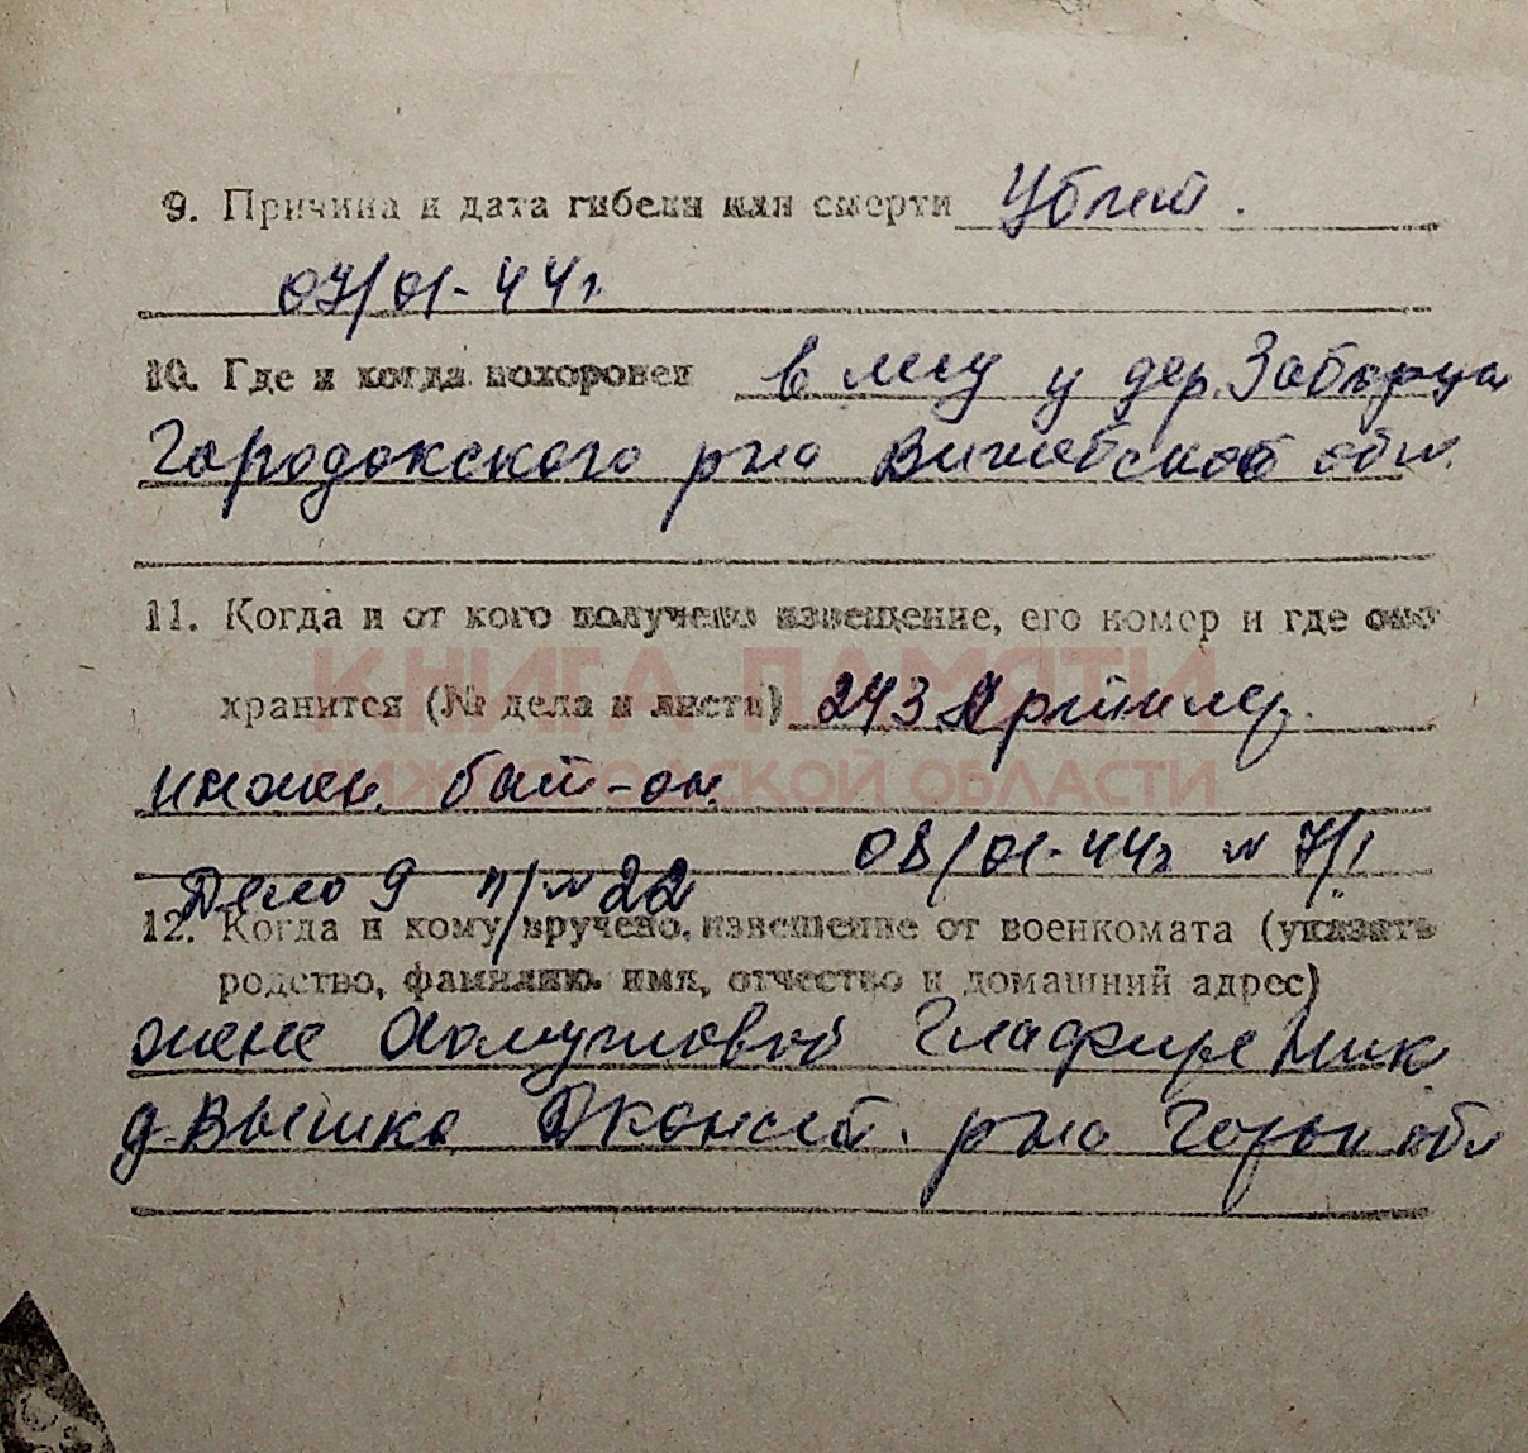 9. Причина и дата гибели или смерти Убит.
07/01-44г.
10. Где и когда похоронен в лесу у дер.
Городокского р-на Витебской обл.
11. Когда и от кого получено извещение, его номер и где оно
КНИГА ПАМЯТИ
хранится (№ дела и листа) 243 Артилер.
НИЖЕГОРОДСКОЙ ОБЛАСТИ
инжен. бат-он.
08/01-44г № 7/1
Дело 9 п/№ 22
12. Когда и кому вручено извещение от военкомата (указать
родство, фамилию, имя, отчество и домашний адрес)
жене Хомутовой Глафире Ник
д. Вышка р-на Горьк обл